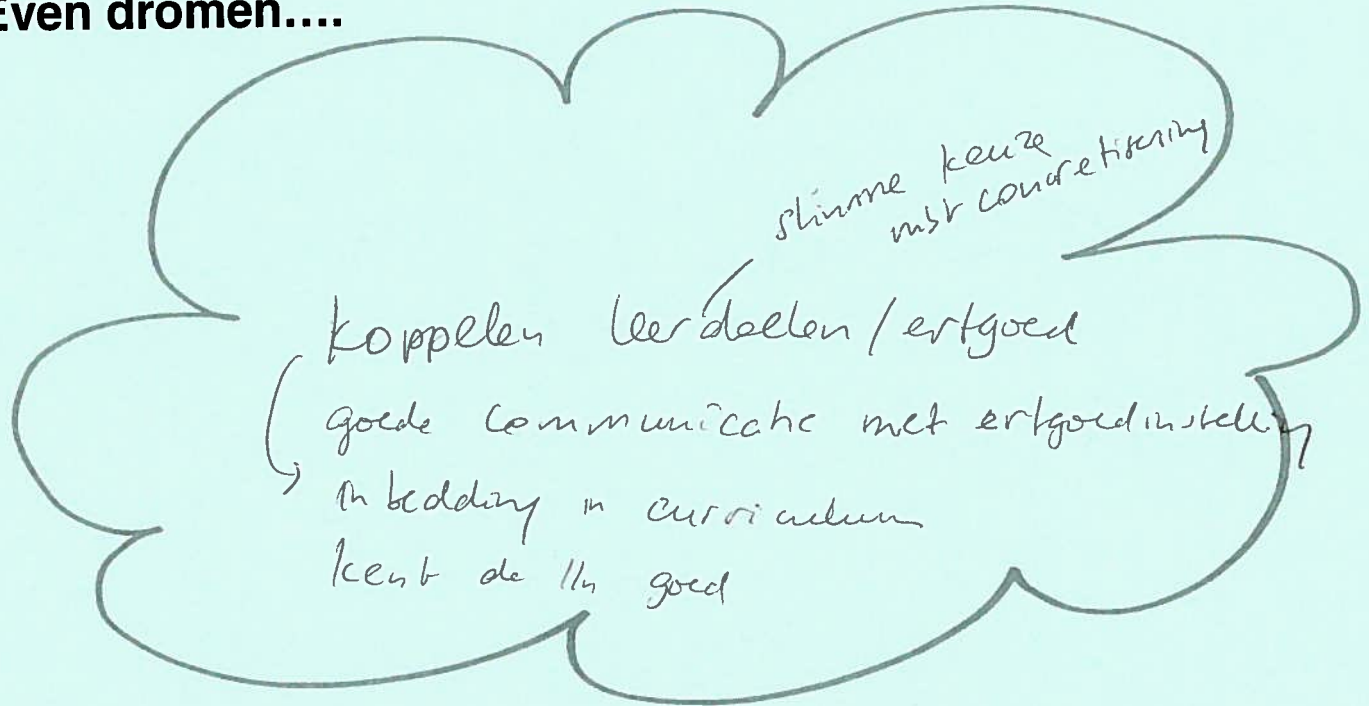 Even dromen....
slimme keuze
mbt concretisering
koppelen leerdoelen / erfgoed
goede communicatie met erfgoedinstelling
inbedding in curriculum
kent de lln goed